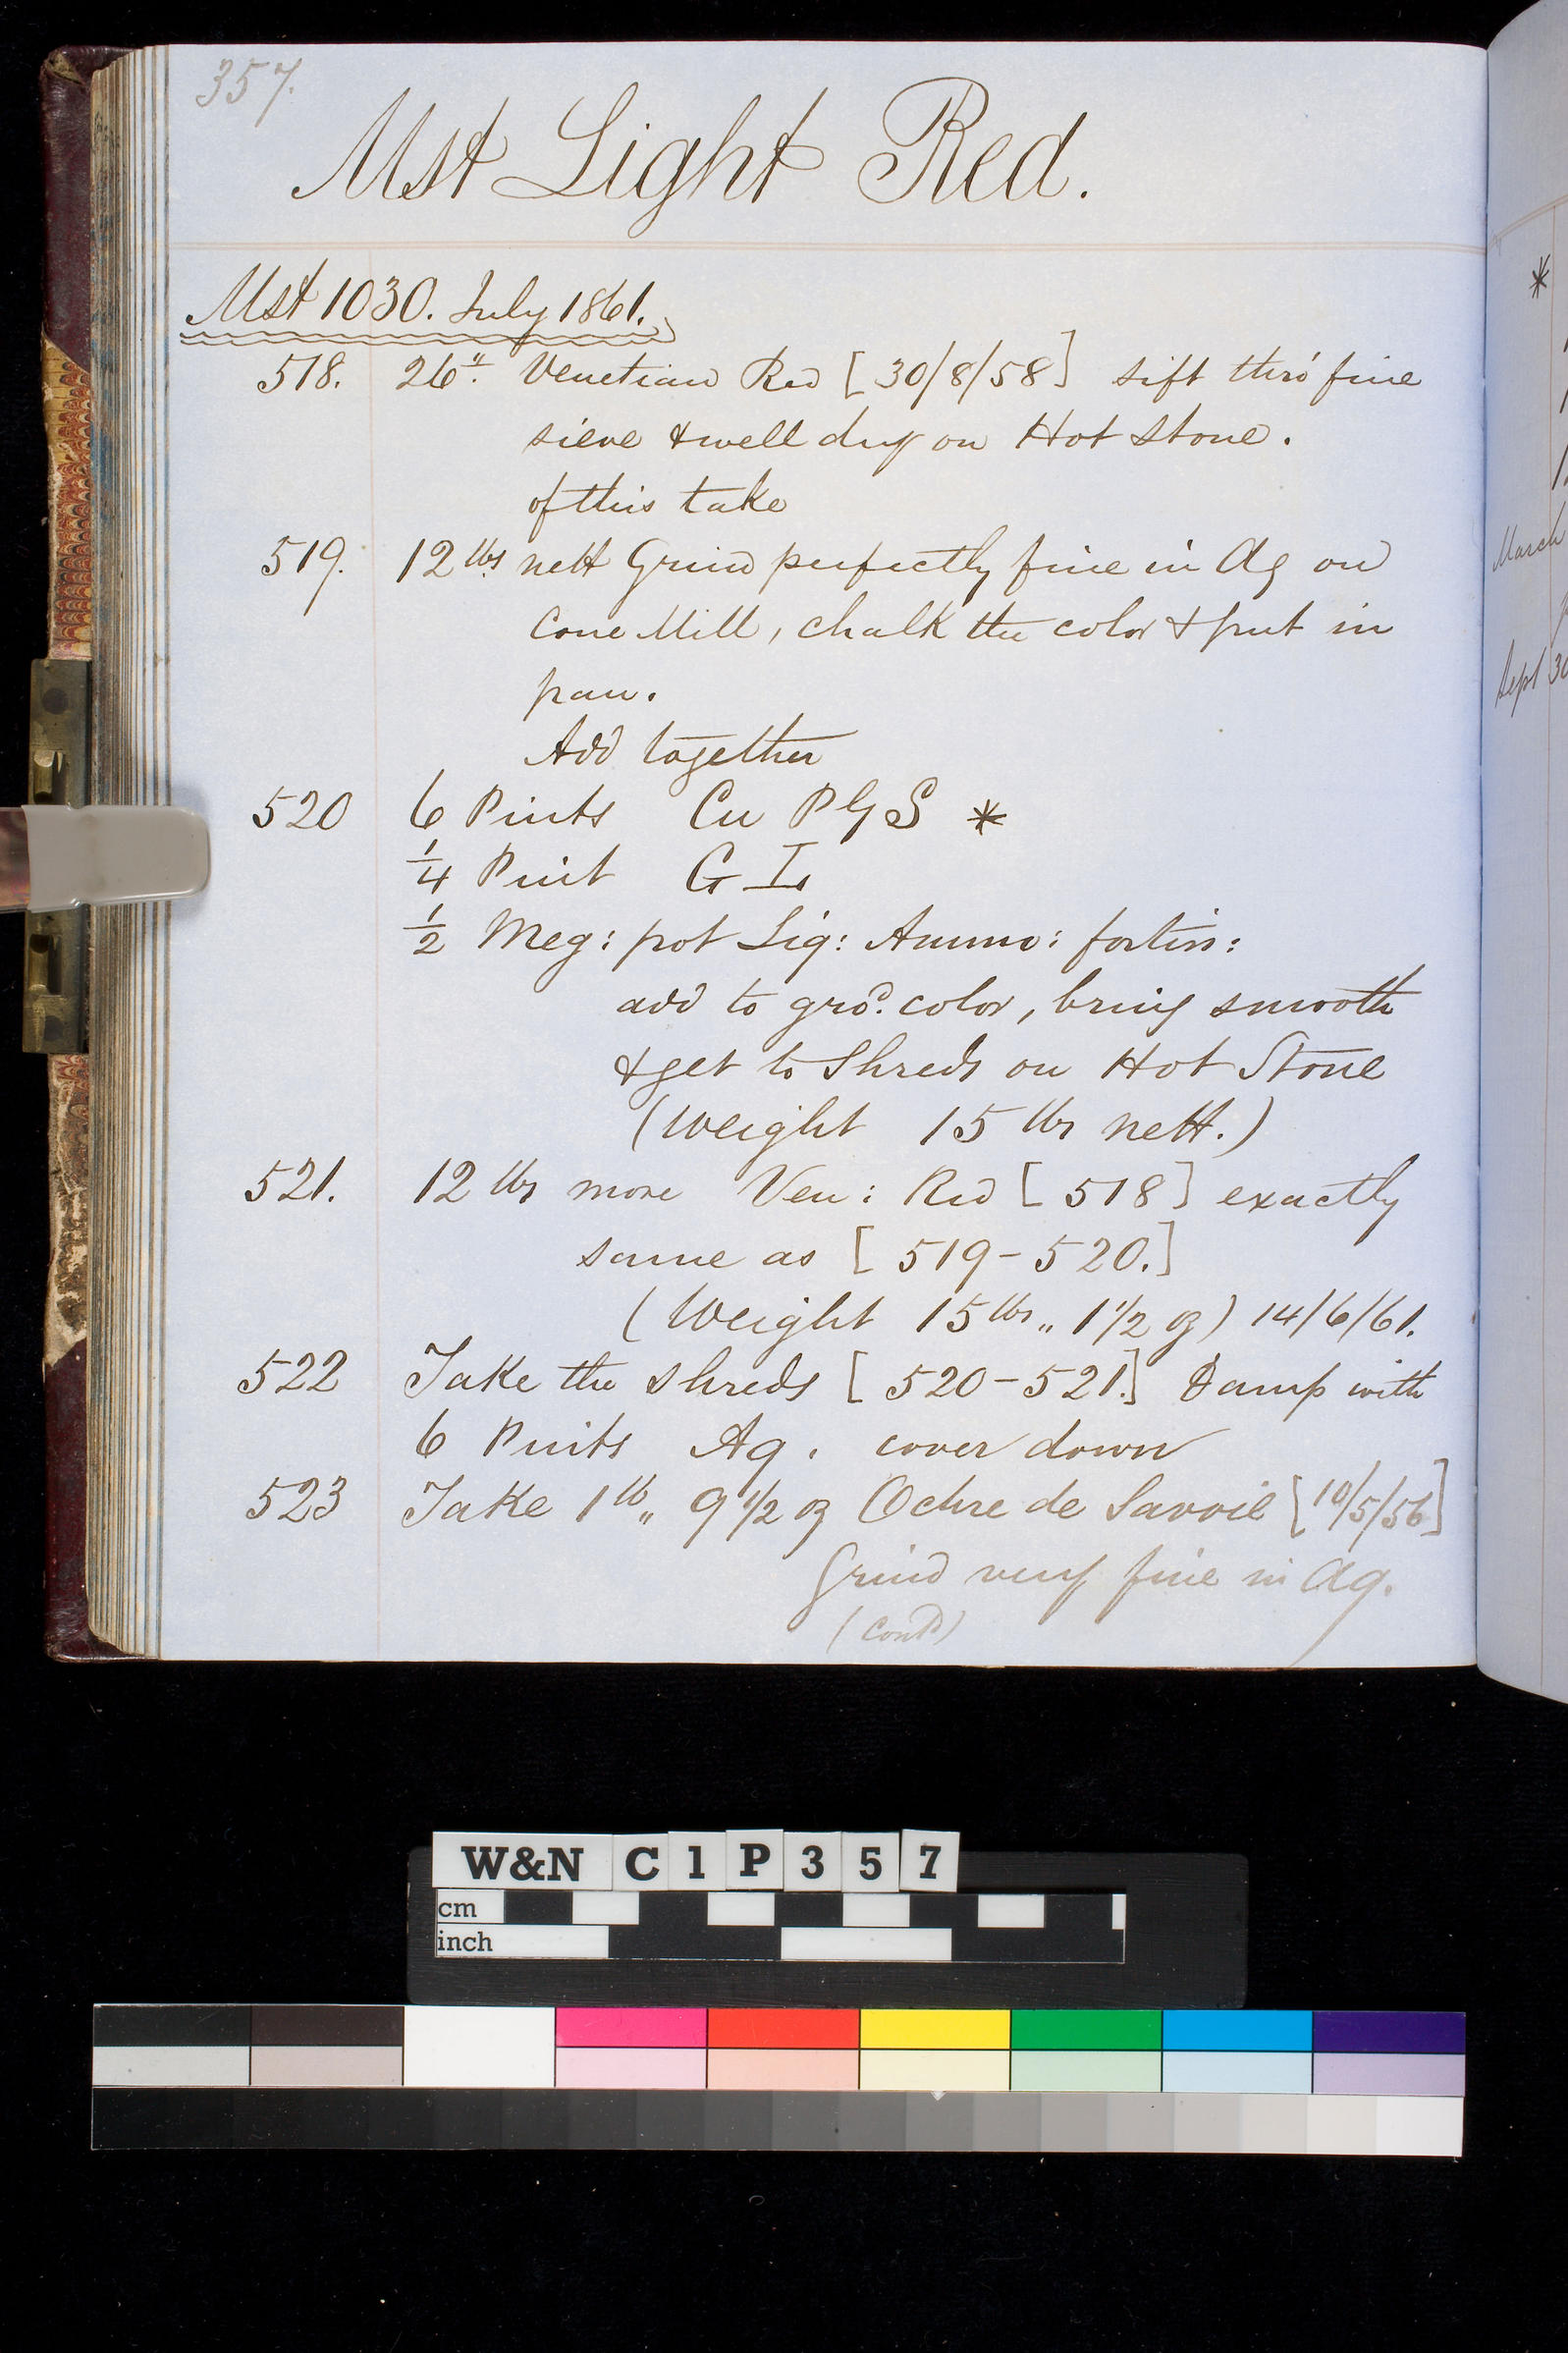 357.
Mst Light Red.
Mst 1030. July 1861.
518. 26" Venetian Red [30/8/58] sift thro' fine
sieve & well dry on Hot Stone.
of this take
519. 12 lbs nett Grind perfectly fine in Aq on
Cone Mill, chalk the color & put in
pan.
Add together
520 6 Pints Cu P G S *
1/4 Pint G I
1/2 Meg: pot Liq: Ammo: fortis:
add to gro^d. color, bring smooth
& get to Shreds on Hot Stone
(Weight 15 lbs nett.)
521. 12 lbs more Ven: Red [518] exactly
same as [519-520.]
(Weight 15 lbs,, 1 1/2 oz) 14/6/61.
522 Take the shreds [520-521.] Damp with
6 Pints Aq. cover down
523 Take 1 lb,, 9 1/2 oz Ochre de Savoie [10/5/56]
Grind very fine in Aq.
(Cont^d)
*
March
Sept 30
W&N C1P357
cm
inch